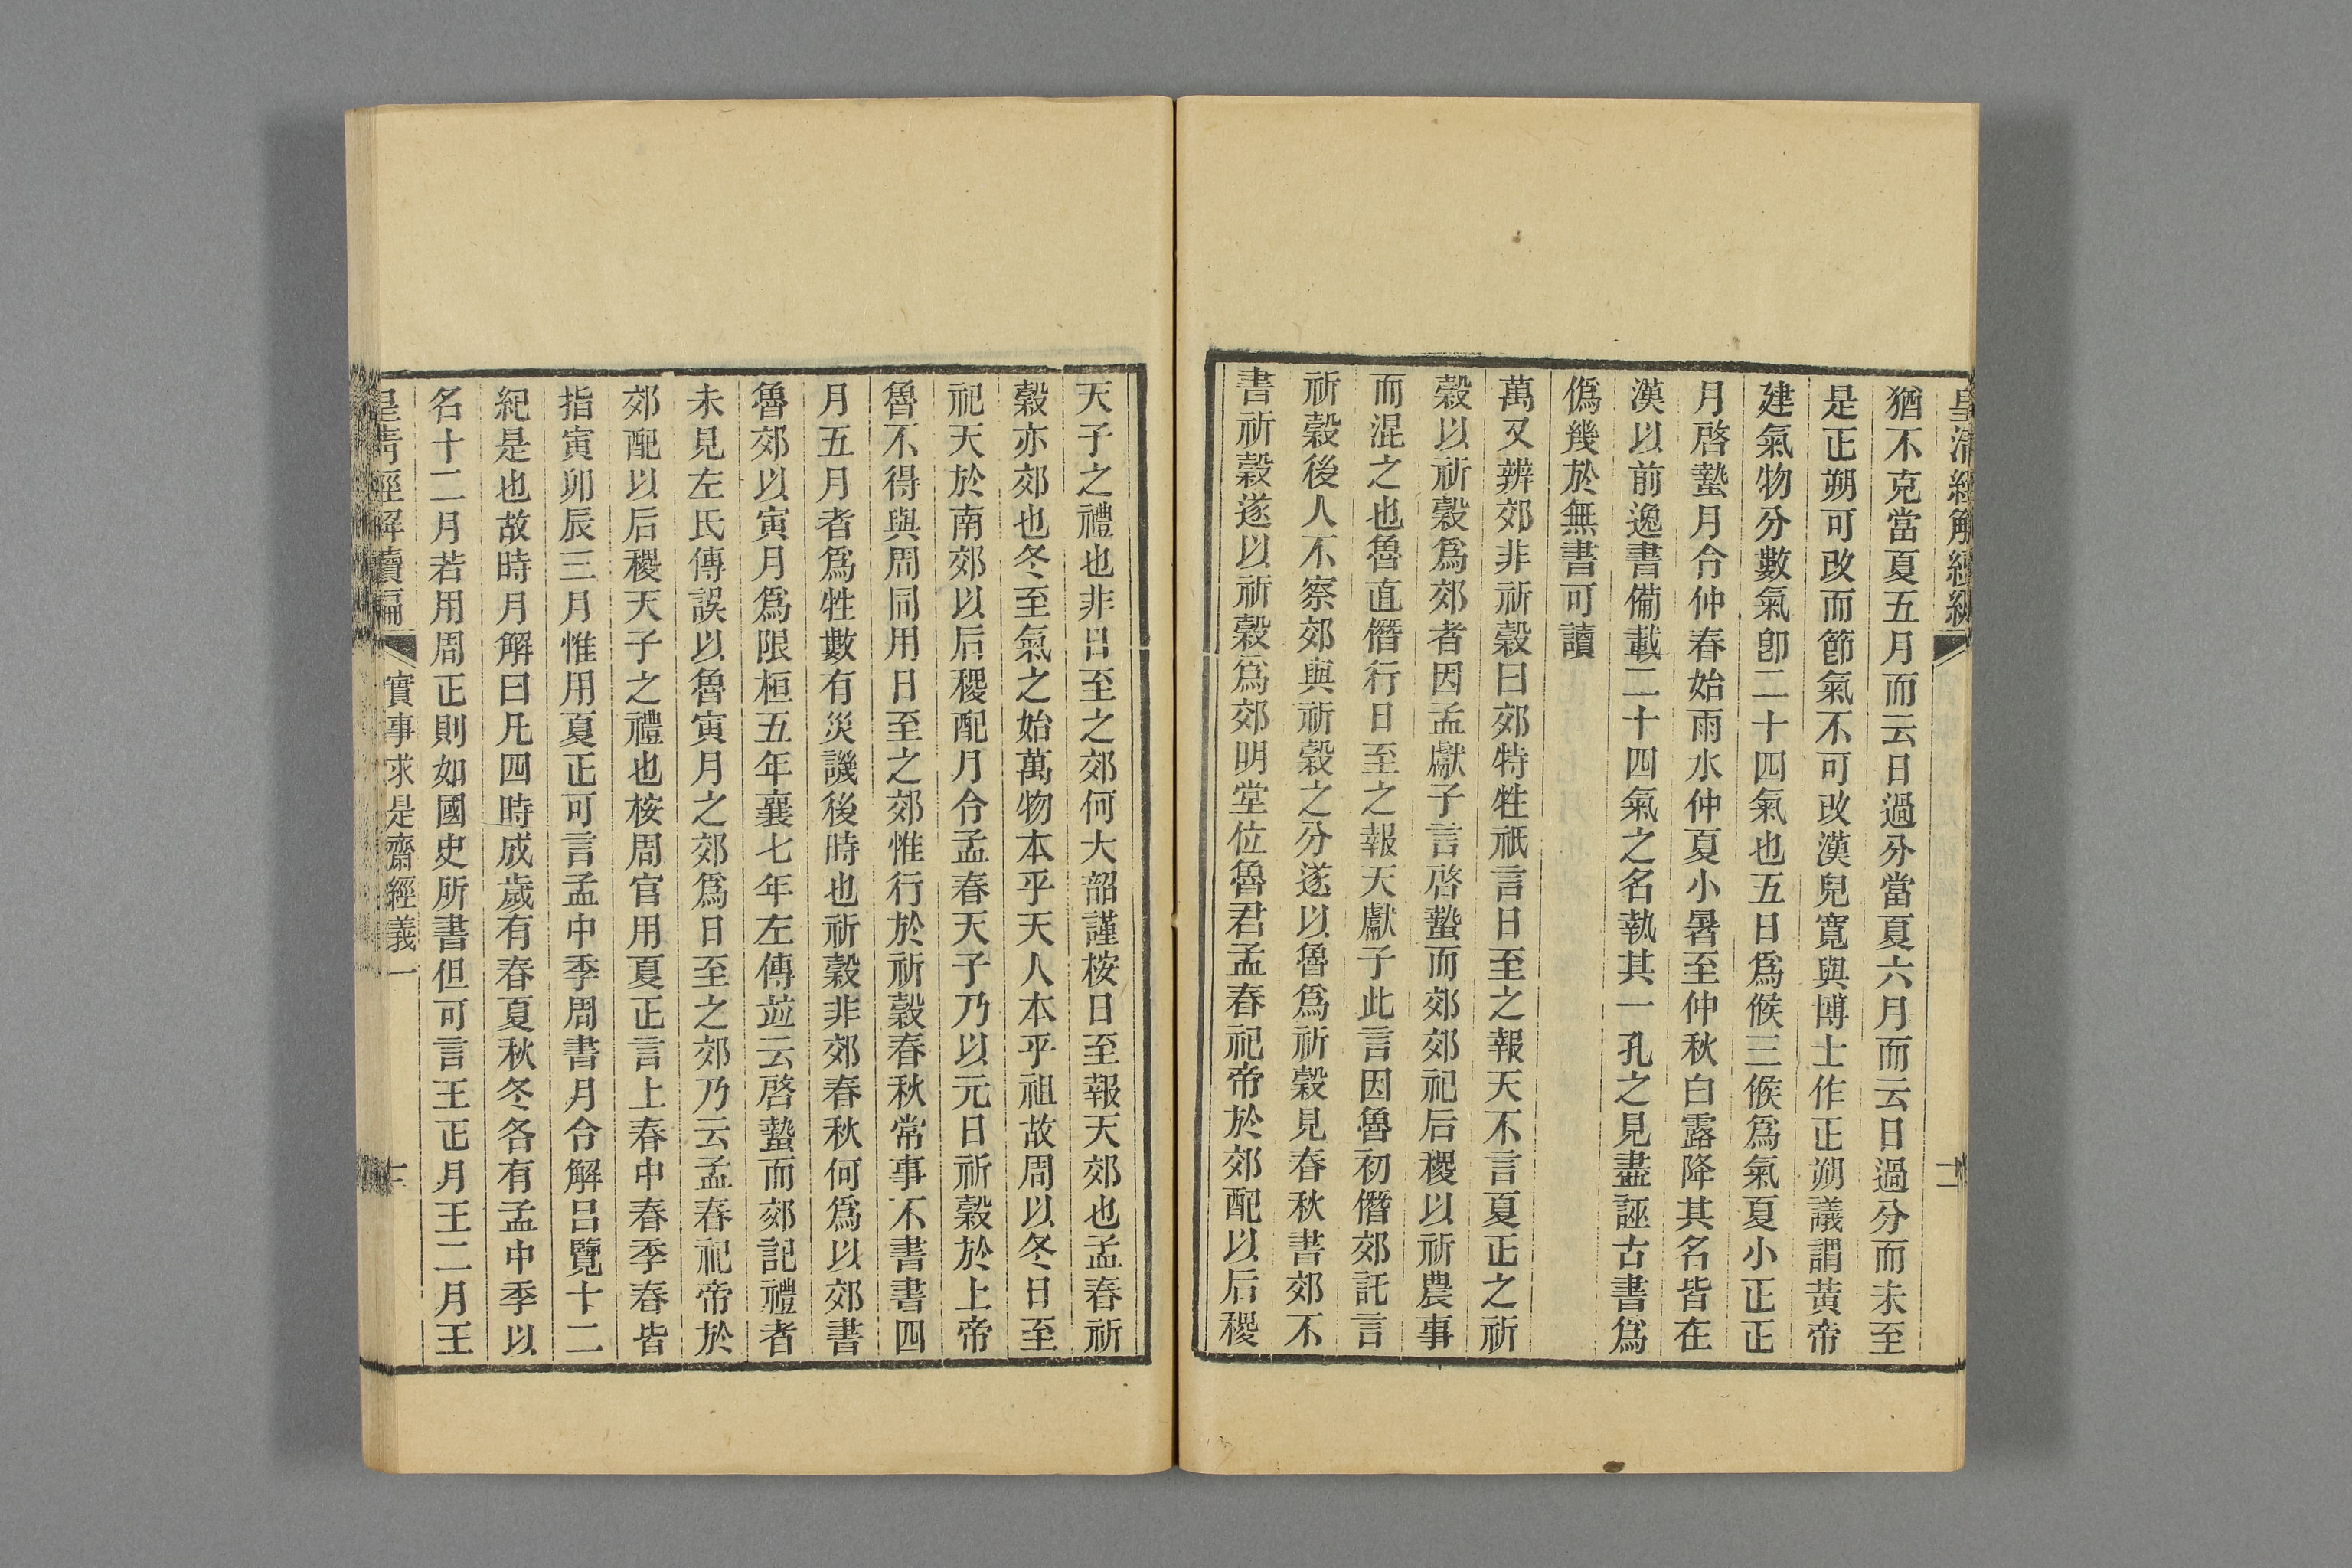 皇清經解續編
二
猶不克當夏五月而云日過分當夏六月而云日過分而未至
是正朔可改而節氣不可改漢兒寬與博士作正朔議謂黃帝
建氣物分數氣卽二十四氣也五日爲候三候爲氣夏小正正
月啓蟄月令仲春始雨水仲夏小暑至仲秋白露降其名皆在
漢以前逸書備載二十四氣之名執其一孔之見盡誣古書爲
僞幾於無書可讀
萬又辨郊非祈穀曰郊特牲祇言日至之報天不言夏正之祈
穀以祈穀爲郊者因孟獻子言啓蟄而郊郊祀后稷以祈農事
而混之也魯直僭行日至之報天獻子此言因魯初僭郊託言
祈穀後人不察郊與祈穀之分遂以魯爲祈穀見春秋書郊不
書祈穀遂以祈穀爲郊明堂位魯君孟春祀帝於郊配以后稷
天子之禮也非日至之郊何大韶謹桉日至報天郊也孟春祈
穀亦郊也冬至氣之始萬物本乎天人本乎祖故周以冬日至
祀天於南郊以后稷配月令孟春天子乃以元日祈穀於上帝
魯不得與周同用日至之郊惟行於祈穀春秋常事不書書四
月五月者爲牲數有災譏後時也祈穀非郊春秋何爲以郊書
魯郊以寅月爲限桓五年襄七年左傳竝云啓蟄而郊記禮者
未見左氏傳誤以魯寅月之郊爲日至之郊乃云孟春祀帝於
郊配以后稷天子之禮也桉周官用夏正言上春中春季春皆
指寅卯辰三月惟用夏正可言孟中季周書月令解呂覽十二
紀是也故時月解曰凡四時成歲有春夏秋冬各有孟中季以
名十二月若用周正則如國史所書但可言王正月王二月王
皇清經解續編
實事求是齋經義一